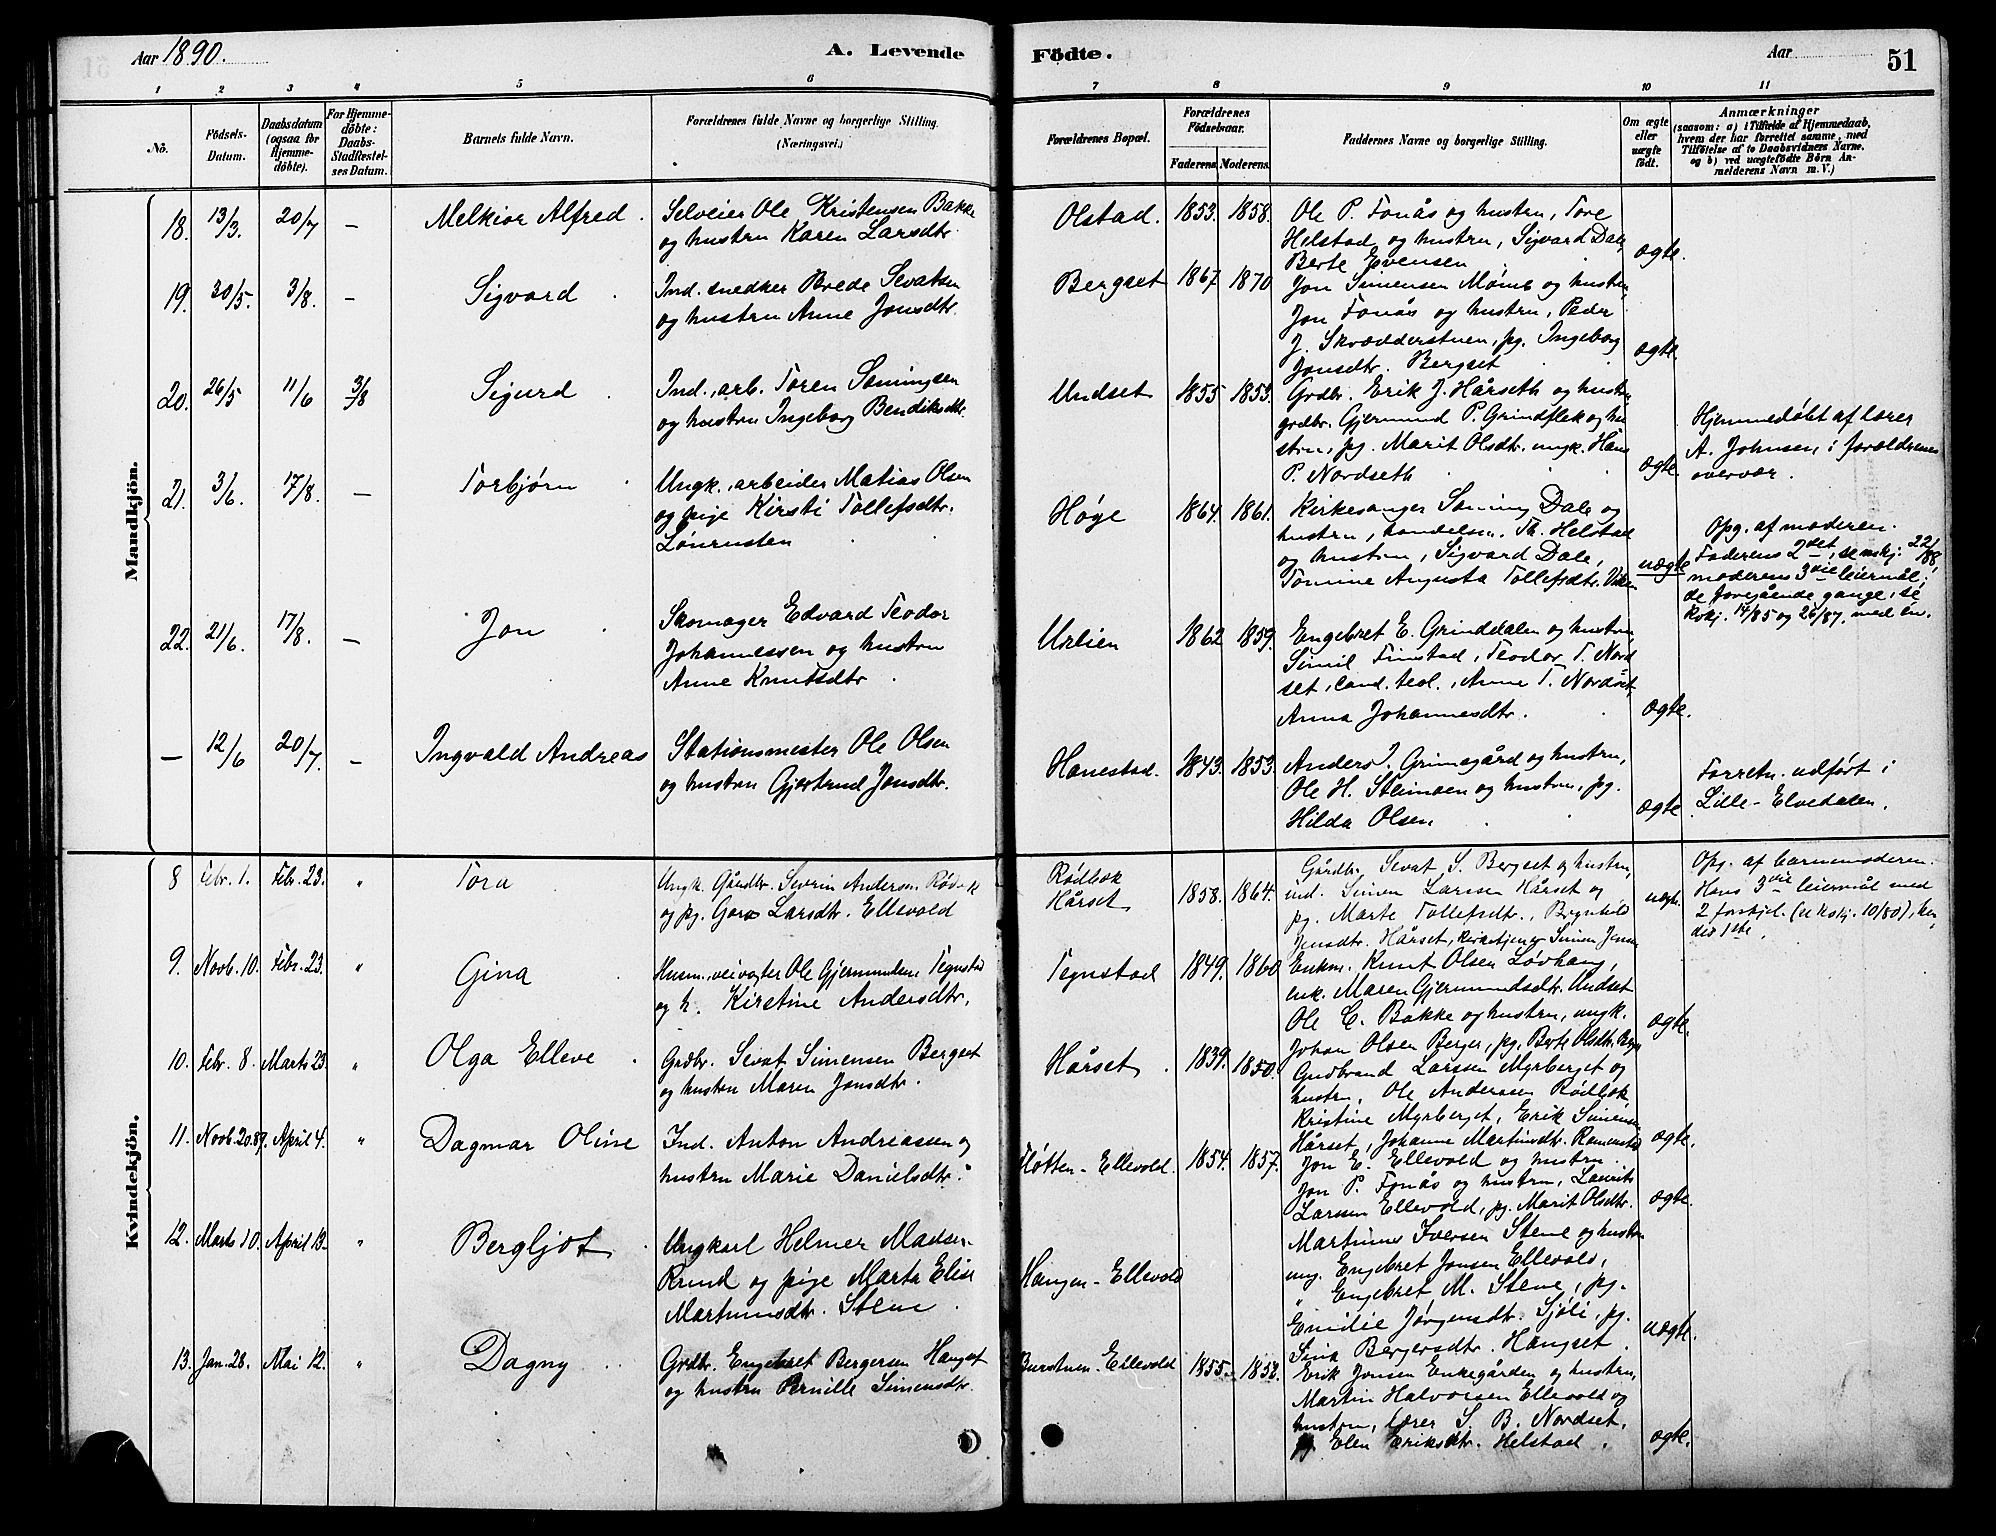 Aar 1890.
A. Levende
Födte.
Aar
51
1 2 3 4 5 6 7 8 9 10 11
No.
Födsels-
Datum.
Daabsdatum
(ogsaa för
Hjemme-
döbte).
For Hjemme-
döbte:
Daabs-
Stadfæstel-
ses Datum.
Barnets fulde Navn.
Forældrenes fulde Navne og borgerlige Stilling.
(Næringsvei.)
Forældrenes Bopæl.
Forældrenes
Födselsaar.
Faderens. Moderens.
Faddernes Navne og borgerlige Stilling.
Om ægte
eller
uægte
födt.
Anmærkninger
(saasom: a) i Tilfælde af Hjemmedaab,
hvem der har forrettet samme, med
Tilföielse af to Daabsvidners Navne,
og b) ved uægtefödte Börn An-
melderens Navn m. V.)
Mandkjön.
18. 13/3. 20/7 — Melkior Alfred.
Selveier Ole Kristensen Bakke
og hustru Karen Larsdtr.
Olstad. 1853. 1858.
Ole P. Fonås og hustru, Tore
Helstad og hustru, Sigvard Dale,
Berte Evensen
ægte.
19. 30/5. 3/8. — Sigvard
Ind. snedker Brede Sevatsen
og hustru Anne Jonsdtr.
Bergset 1867 1870
Jon Simensen Momb og hustru,
Jon Fonås og hustru, Peder
J. Skrædderstuen, pg. Ingeborg
Jonsdtr. Bergset
ægte.
20. 26/5 11/6 3/8 Sigurd
Ind., arb. Toren Somingsen
og hustru Ingeborg Bendiksdtr.
Undset 1855 1853.
Grdbr. Erik J. Hårseth og hustru
grdbr. Gjermund P. Grindflek og hu
stru, pg. Marit Olsdtr. ungk. Hans
P. Nordseth.
ægte.
Hjemmedøbt af lærer
A. Johnsen, i forældrenes
overvær.
21. 3/6. 17/8. — Torbjørn
Ungk., arbeider Matias Olsen
og pige Kirsti Tollefsdtr.
Lønrusten
Høye 1864. 1861.
Kirkesanger Soming Dale og
hustru, handelsm. Th. Helstad
og hustru, Sigvard Dale,
Tomine Augusta Tollefsdtr.
uægte
Opg. af moderen.
Faderens 2det, se mskj. 22/88,
moderens 3die leiermål;
de foregående gange, se
kskj. 14/85 og 26/87, med en.
22. 21/6. 17/8. — Jon
Skomager Edvard Teodor
Johannessen og hustru
Anne Knutsdtr.
Urlien 1862 1859.
Engebret E. Grinddalen og hustru
Simil Finstad, Teodor T. Nord
set, cand. teol., Anne T. Nordset,
Anna Johannesdtr.
ægte.
— 12/6 20/7. — Ingvald Andreas
Stationsmester Ole Olsen
og hustru Gjertrud Jonsdtr.
Hanestad. 1843. 1853.
Anders J. Grimsgård og hustru,
Ole H. Steimoen og hustru, pg.
Hilda Olsen
ægte
Forretn. udført i
Lille-Elvedalen.
Kvindekjön.
8 Febr. 1. Febr. 23. " Tora
Ungk. Gårdbr. Sevrin Anderson Rødbæk
og pg. Goro Larsdtr. Ellevold
Rødbæk
Hårset 1858. 1864.
Gårdbr. Sevat S. Bergset og hustru,
ind. Simen Larsen Hårset og
pg. Marte Tollefsdtr., Brynhild
Jensdtr. Hårset, kirketjener Simen Jensen
uægte.
Opg. af barnemoderen.
Hans 3die leiermål med
2 forskjel. (se kskj. 10/80), hen
des 1ste.
9. Novb. 10. Febr. 23. " Gina
Husm., veivogter Ole Gjermundsen Tegnstad
og h. Kirstine Andersdtr.
Tegnstad 1849. 1860
Enkm. Knut Olsen Løvhaug,
enk. Maren Gjermundsdtr. Undset
Ole C. Bakke og hustru, ungk.
Johan Olsen Berger, pg. Berte Olsdtr.
ægte.
10. Febr. 8. Marts 23. " Olga Elleve.
Grdbr. Sevat Simensen Bergset
og hustru Maren Jonsdtr.
Hårset. 1839. 1850.
Gudbrand Larsen Myrberget og
hustru, Ole Andersen Rødbæk
Kristine Myrberget, Erik Simensen
Hårset, Johanne Martinsdtr. Ramerstad
ægte.
11. Novb. 20. 89. April 4. " Dagmar Oline
Ind. Anton Andreassen og
hustru Marie Danielsdtr.
Fløtten-Ellevold. 1854. 1857.
Jon E. Ellevold og hustru
Jon P. Fonås og hustru, Laurits
Larsen Ellevold, pg. Marit Olsdtr.
ægte.
12. Marts 10. April 13. " Bergljot
Ungkarl Helmer Madsen
Rund og pige Marta Elise
Martinusdtr. Stene.
Haugen-Ellevold
Martinus Iversen Stene og hustru
ung. Engebret Jonsen Ellevold,
" Engebret M. Stene, pg.
Emilie Jørgensdtr. Sjøli, pg.
Sina Bergersdtr. Haugset.
uægte.
13. Jan. 28. Mai 12. " Dagny
Grdbr. Engebret Bergersen Haugset
og hustru Pernille Simensdtr.
Burstuen-Ellevold 1855. 1858.
Erik Jonsen Enkegården og hustru,
Martin Halvorsen Ellevold og
hustru, lærer S. B. Nordset,
pg Elen Eriksdtr. Helstad.
ægte.